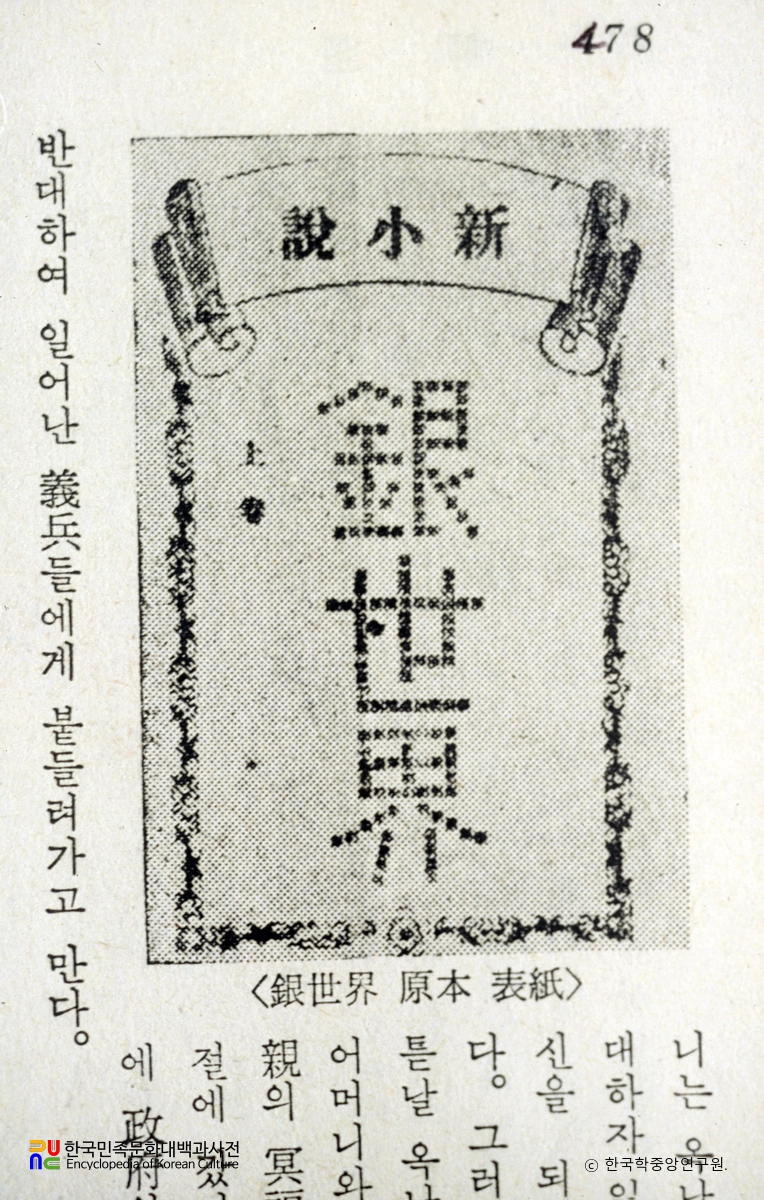 478
新小說
銀世界
上卷
〈銀世界 原本 表紙〉
니는 옥
대하자
신을 되
다. 그러
튿날 옥
어머니와
親의 冥
절에
에 政府
반대하여 일어난 義兵들에게 붙들려가고 만다.
한국민족문화대백과사전
Encyclopedia of Korean Culture
© 한국학중앙연구원.